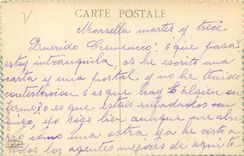 CARTE POSTALE
Marsella martes y trece
Querido Cremencio: ó que pasa
estoy intranquila, os he escrito una
carta y una postal y no he tenido
contestacion ó es que hay algien en
fermo? o es que estais enfadados con
migo, yo sigo bien aunque me abu
rro como una ostra, ya he visto a
todos los agentes mejores de aqui